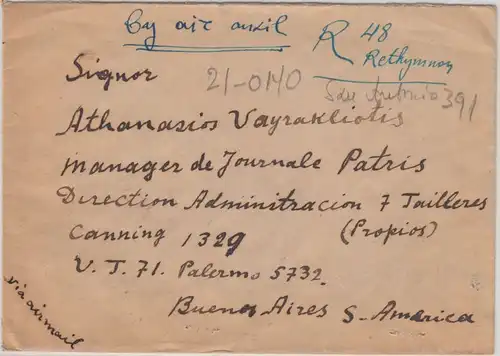 By air mail
R 48
Rethymnon
Signor
21-0140
San Antonio 391
Athanasios Vayrakliotis
manager de Journale Patris
Direction Administracion 7 Tailleres
(Propios)
Canning 1329
U. T. 71. Palermo 5732.
Buenos Aires S-America
via airmail